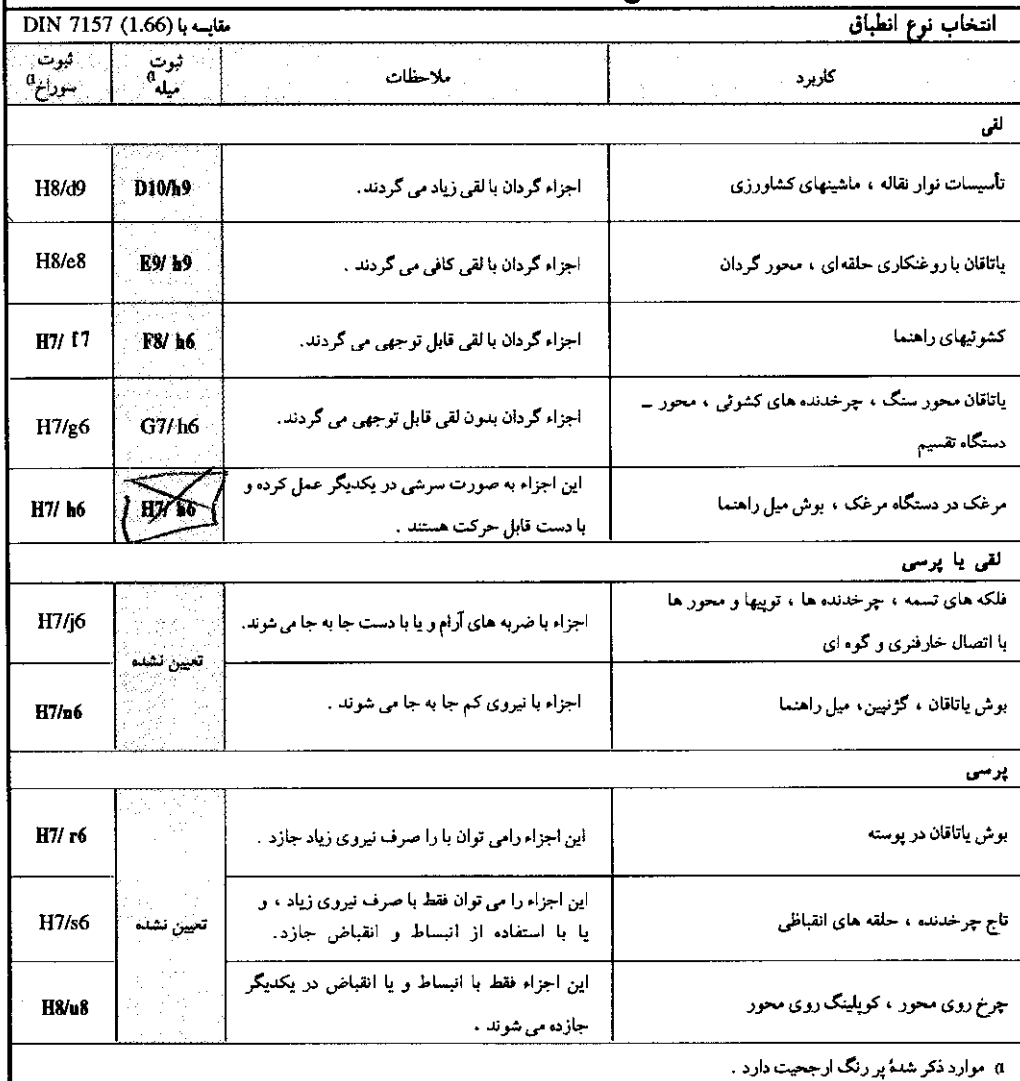 انتخاب نوع انطباق
مقایسه با DIN 7157 (1.66)
کاربرد
ملاحظات
ثبوت
میله 1)
ثبوت
سوراخ 1)
لقی
تأسیسات نوار نقاله ، ماشینهای کشاورزی
اجزاء گردان با لقی زیاد می گردند .
D10/h9
H8/d9
یاتاقان با روغنکاری حلقه ای ، محور گردان
اجزاء گردان با لقی کافی می گردند .
E9/ h9
H8/e8
کشوئیهای راهنما
اجزاء گردان با لقی قابل توجهی می گردند.
F8/ h6
H7/ f7
یاتاقان محور سنگ ، چرخدنده های کشوئی ، محور ـ
دستگاه تقسیم
اجزاء گردان بدون لقی قابل توجهی می گردند.
G7/ h6
H7/g6
مرغک در دستگاه مرغک ، بوش میل راهنما
این اجزاء به صورت سرشی در یکدیگر عمل کرده و
با دست قابل حرکت هستند .
H7/ h6
H7/ h6
لقی یا پرسی
فلکه های تسمه ، چرخدنده ها ، توپیها و محور ها
با اتصال خارفنری و گوه ای
اجزاء با ضربه های آرام و یا با دست جا به جا می شوند.
تعیین نشده
H7/j6
بوش یاتاقان ، گژنپین، میل راهنما
اجزاء با نیروی کم جا به جا می شوند .
H7/n6
پرسی
بوش یاتاقان در پوسته
این اجزاء رامی توان با را صرف نیروی زیاد جازد .
تعیین نشده
H7/ r6
تاج چرخدنده ، حلقه های انقباظی
این اجزاء را می توان فقط با صرف نیروی زیاد ، و
یا با استفاده از انبساط و انقباض جازد.
H7/s6
چرخ روی محور ، کوپلینگ روی محور
این اجزاء فقط با انبساط و یا انقباض در یکدیگر
جازده می شوند .
H8/u8
1) موارد ذکر شدهٔ پر رنگ ارجحیت دارد .